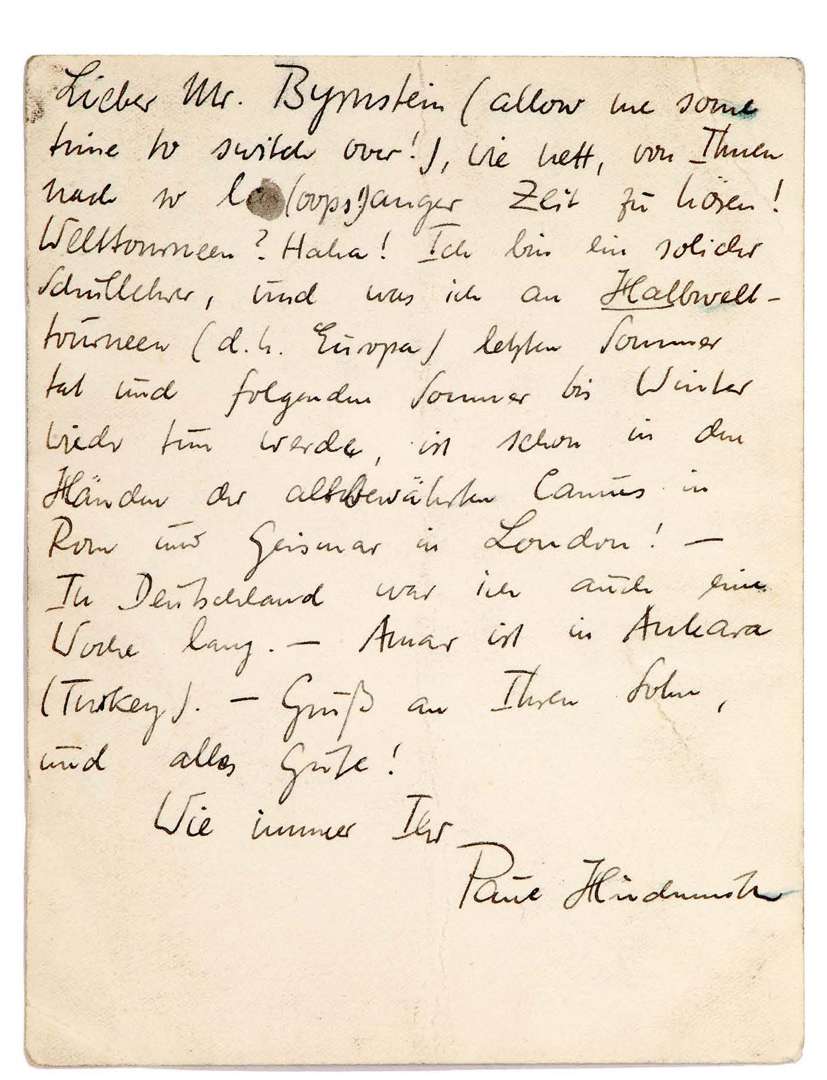 Lieber Mr. Byrnstein (allow me some
time to switch over!), wie nett, von Ihnen
nach so la(oops!)anger Zeit zu hören!
Welttourneen? Haha! Ich bin ein solider
Schullehrer, und was ich an Halbwelt-
tourneen (d.h. Europa) letzten Sommer
tat und folgenden Sommer bis Winter
wieder tun werde, ist schon in den
Händen der altbewährten Camus in
Rom und Geismar in London! —
In Deutschland war ich auch eine
Woche lang. — Amar ist in Ankara
(Turkey). — Gruß an Ihren Sohn,
und alles Gute!
Wie immer Ihr
Paul Hindemith